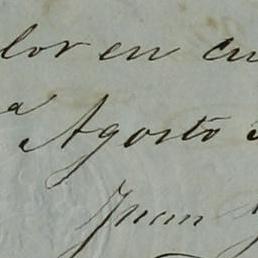 lor en cu
a Agosto 3
Juan